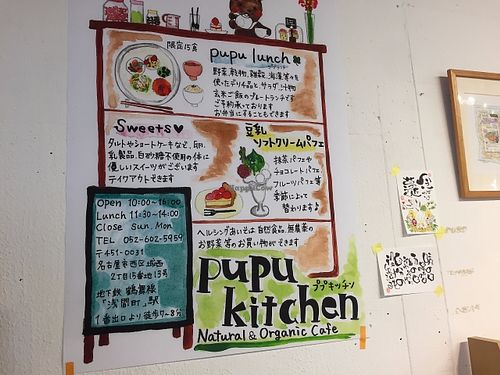 限定15食
pupu lunch
野菜、穀物、雑穀、海藻等を
使ったデリ4品と、サラダ、汁物
玄米ご飯のプレートランチです
ご予約承っております
お弁当にすることもできます
Sweets
タルトやショートケーキなど、卵、
乳製品、白砂糖不使用の体に
優しいスイーツがございます
テイクアウトできます
豆乳
ソフトクリームパフェ
抹茶パフェや
チョコレートパフェ
フルーツパフェ等
季節によって
替わります♪
HappyCow
ヘルシングあいでは、自然食品、無農薬の
お野菜等のお買い物ができます
Open 10:00~16:00
Lunch 11:30~14:00
Close Sun, Mon
TEL 052-602-5959
〒451-0031
名古屋市西区城西
2丁目15番地13号
地下鉄 鶴舞線
「浅間町」駅
1番出口より徒歩7~8分
pupu
kitchen
ププキッチン
Natural & Organic Cafe